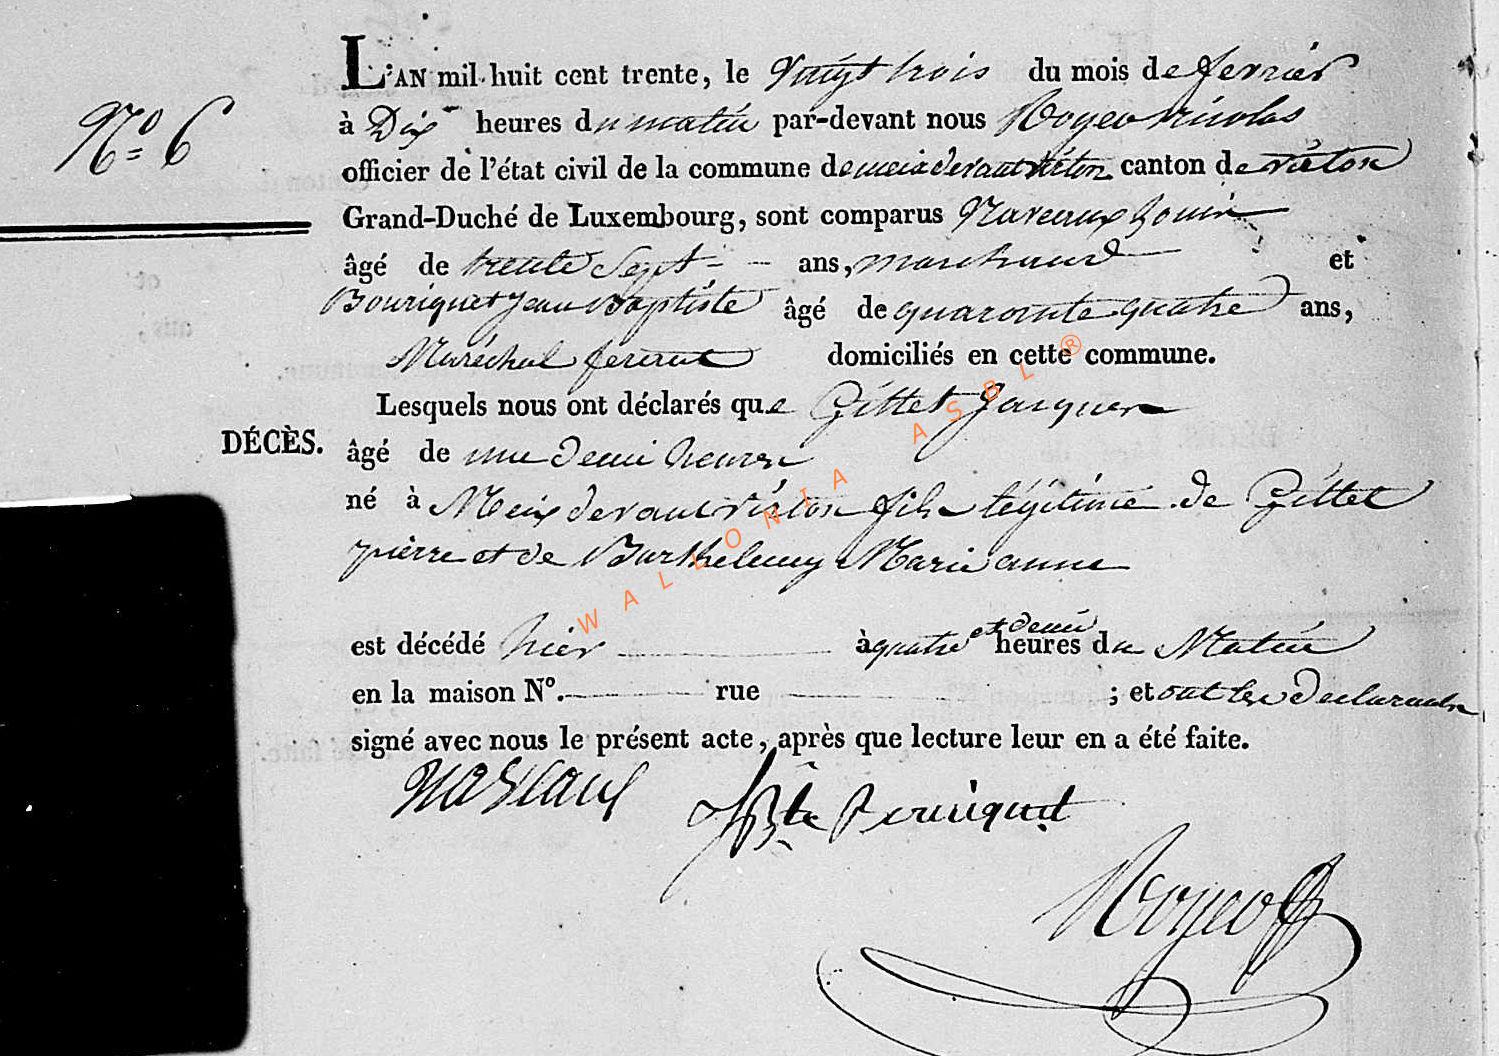 L'AN mil huit cent trente, le vingt trois du mois de fevrier
N° 6
à Dix heures du matin par-devant nous Royer nicolas
officier de l'état civil de la commune de meix devant virton canton de virton
Grand-Duché de Luxembourg, sont comparus Naveaux
âgé de trente Sept ans, marchand et
Bouriquet Jean Baptiste âgé de quarante quatre ans,
Maréchal ferrant domiciliés en cette commune.
Lesquels nous ont déclarés que Gillet Jacques
DÉCÈS.
âgé de une demi heures
né à Meix devant virton fils légitime de Gillet
pierre et de Barthelemy Marie anne
est décédé hier à quatre et demi heures du Matin
en la maison N°. rue ; et ont les declarants
signé avec nous le présent acte, après que lecture leur en a été faite.
Bouriquet
WALLONIA ASBL ®